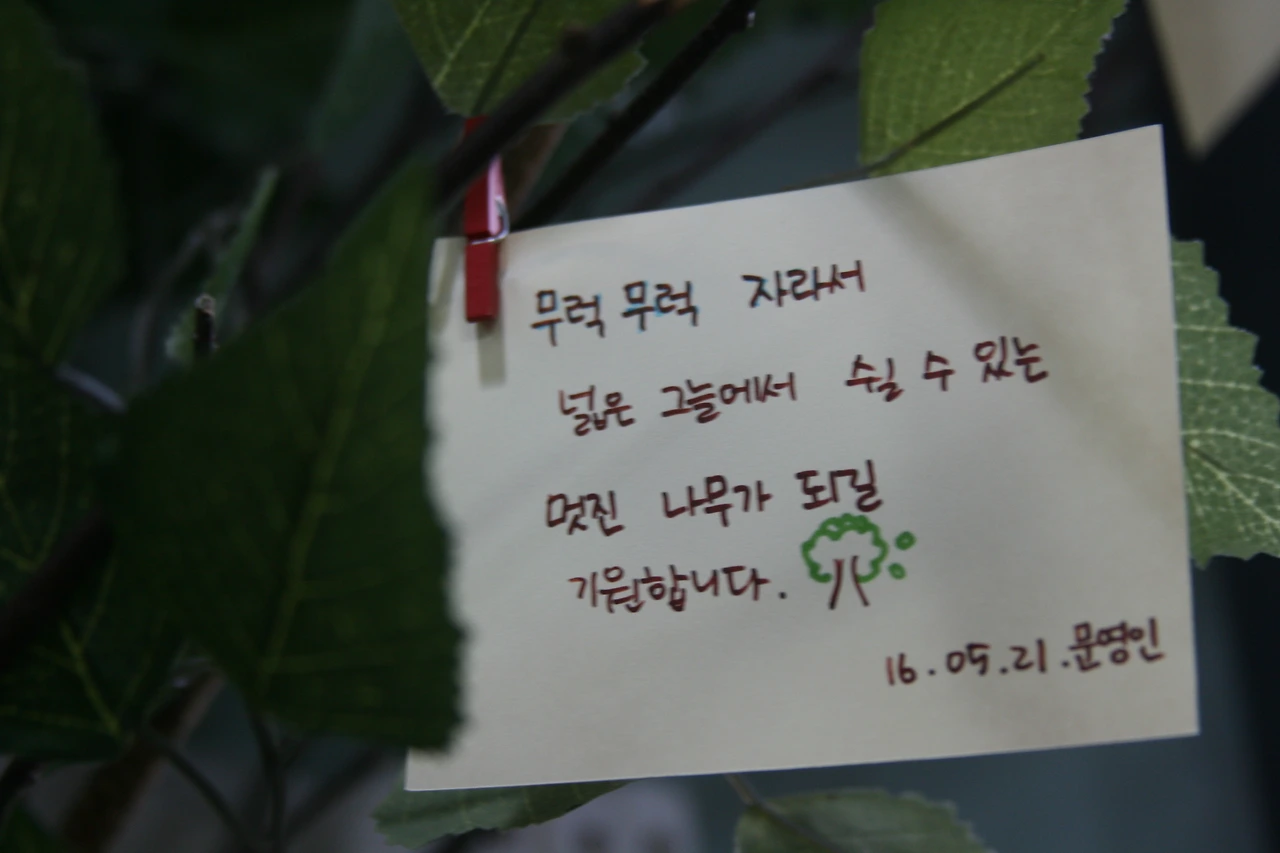 무럭 무럭 자라서
넓은 그늘에서 쉴 수 있는
멋진 나무가 되길
기원합니다.
16.05.21.문영인